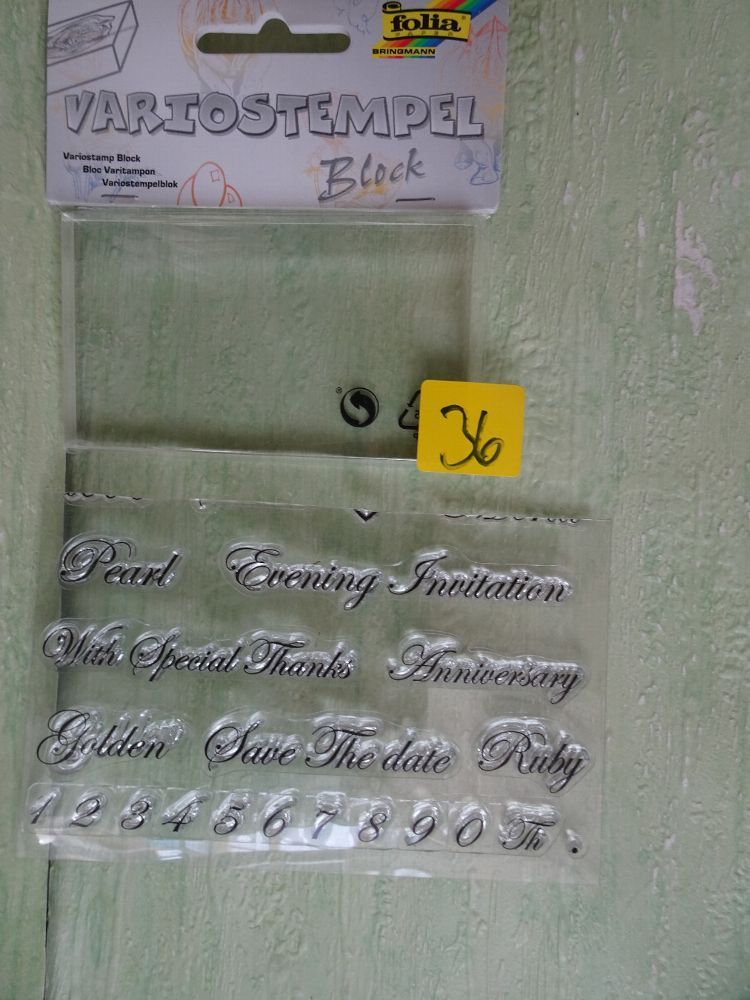 folia
PAPER
BRINGMANN
VARIOSTEMPEL
Block
Variostamp Block
Bloc Varitampon
Variostempelblok
36
Pearl Evening Invitation
With Special Thanks Anniversary
Golden Save The date Ruby
1 2 3 4 5 6 7 8 9 0 Th .